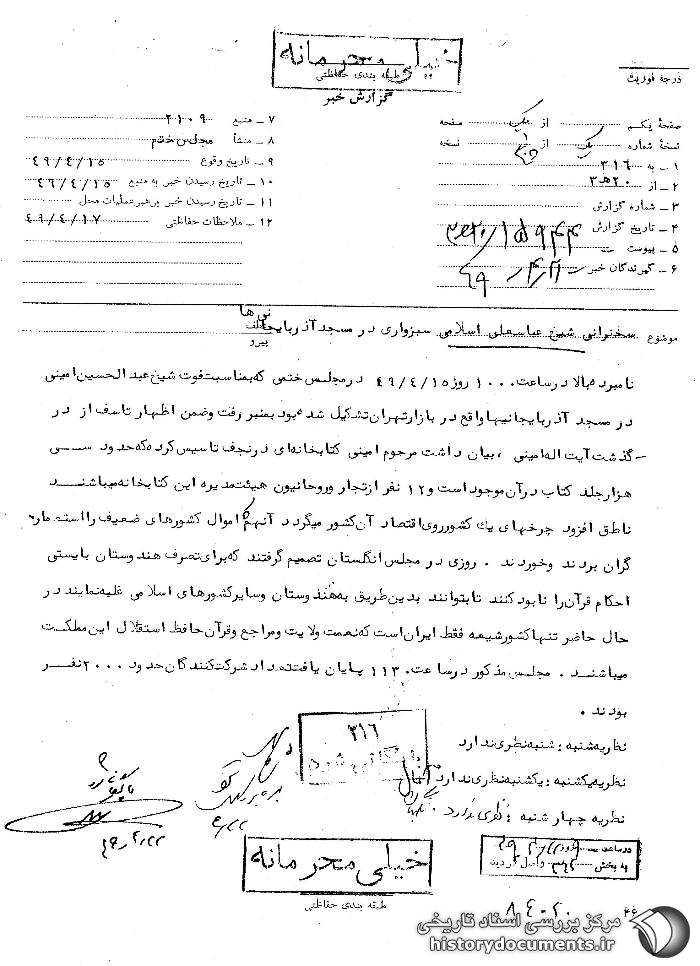 خیلی محرمانه
طبقه بندی حفاظتی
گزارش خبر
درجه فوریت
صفحه یکم از یک صفحه
نسخه شماره یک از نسخه
۱ – به ۳۱۶
۲ – از ۲۰ه‍ ۳
۳ – شماره گزارش
۴ – تاریخ گزارش
۵ – پیوست
۶ – گیرندگان خبر
۷ – منبع ۲۱۰۹
۸ – منشأ مجلس ختم
۹ – تاریخ وقوع ۴۹/۴/۱۵
۱۰ – تاریخ رسیدن خبر به منبع ۴۹/۴/۱۵
۱۱ – تاریخ رسیدن خبر برهبر عملیات محل
۱۲ – ملاحظات حفاظتی ۴۹/۴/۱۷
موضوع سخنرانی شیخ عباسعلی اسلامی سبزواری در مسجد آذربایجانی‌ها
پیرو
نامبرده بالا در ساعت ۱۰۰۰ روز ۴۹/۴/۱۵ در مجلس ختمی که بمناسبت فوت شیخ عبدالحسین امینی
در مسجد آذربایجانیها واقع در بازار تهران تشکیل شده بود بمنبر رفت وضمن اظهار تاسف از در
گذشت آیت اله امینی ، بیان داشت مرحوم امینی کتابخانه‌ای درنجف تاسیس کرده که حدود سی
هزار جلد کتاب در آن موجود است و ۱۲ نفر از تجار وروحانیون هیئت مدیره این کتابخانه میباشند
ناطق افزود چرخهای یك کشور روی اقتصاد آن کشور میگردد آنهم اموال کشورهای ضعیف را استعمار
گران بردند وخوردند . روزی در مجلس انگلستان تصمیم گرفتند که برای تصرف هندوستان بایستی
احکام قرآن را نابود کنند تا بتوانند بدین طریق به هندوستان وسایر کشورهای اسلامی غلبه نمایند در
حال حاضر تنها کشور شیعه فقط ایران است که نعمت ولایت ومراجع وقرآن حافظ استقلال این مملکت
میباشند . مجلس مذکور در ساعت ۱۱۳۰ پایان یافت تعداد شرکت کنندگان حدود ۲۰۰۰ نفر
بودند .
نظریه شنبه : شنبه نظری ندارد
نظریه یکشنبه : یکشنبه نظری ندارد
نظریه چهارشنبه : نظری ندارد .
۳۱۶
بایگانی شود
در ساعت روز
به بخش ۳۱۶ واصل گردید
خیلی محرمانه
طبقه بندی حفاظتی
مرکز بررسی اسناد تاریخی
historydocuments.ir